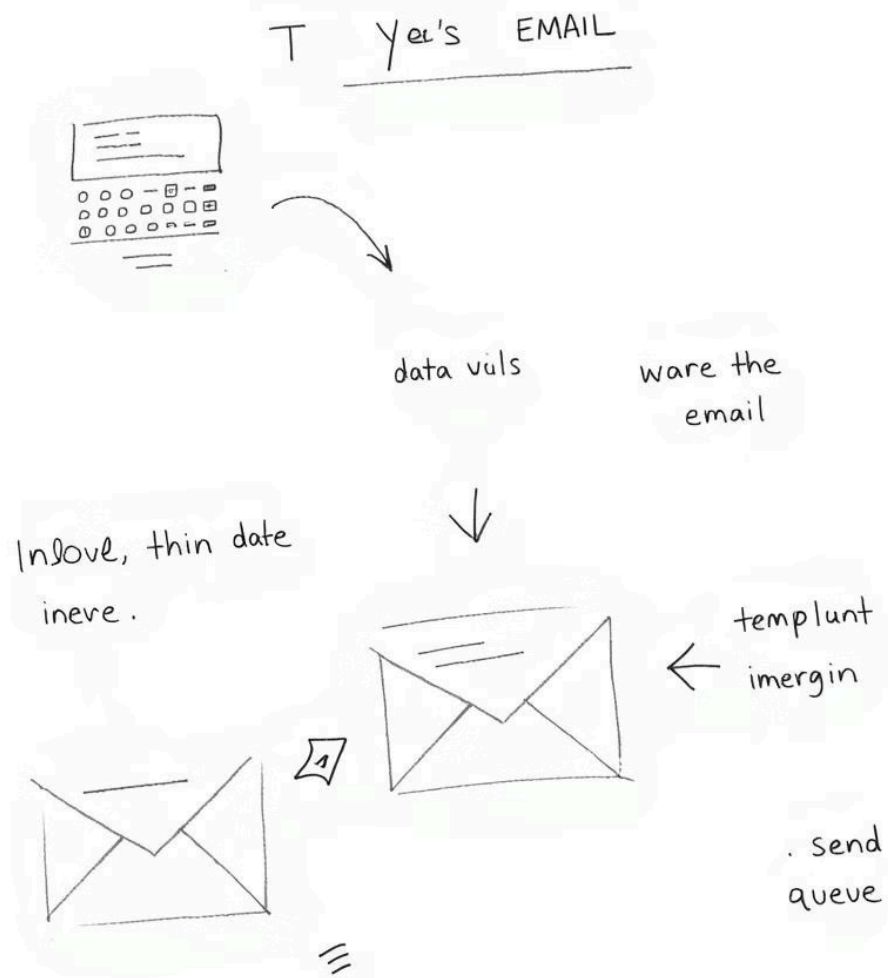 T Yee's EMAIL
data vuls
ware the
email
Inlove, thin date
ineve.
templunt
imergin
. send
queve